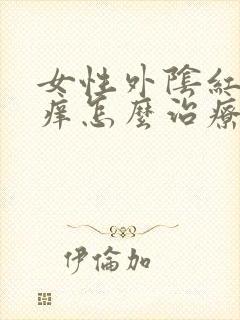 女性外陰紅
痒怎麼治療
伊倫加